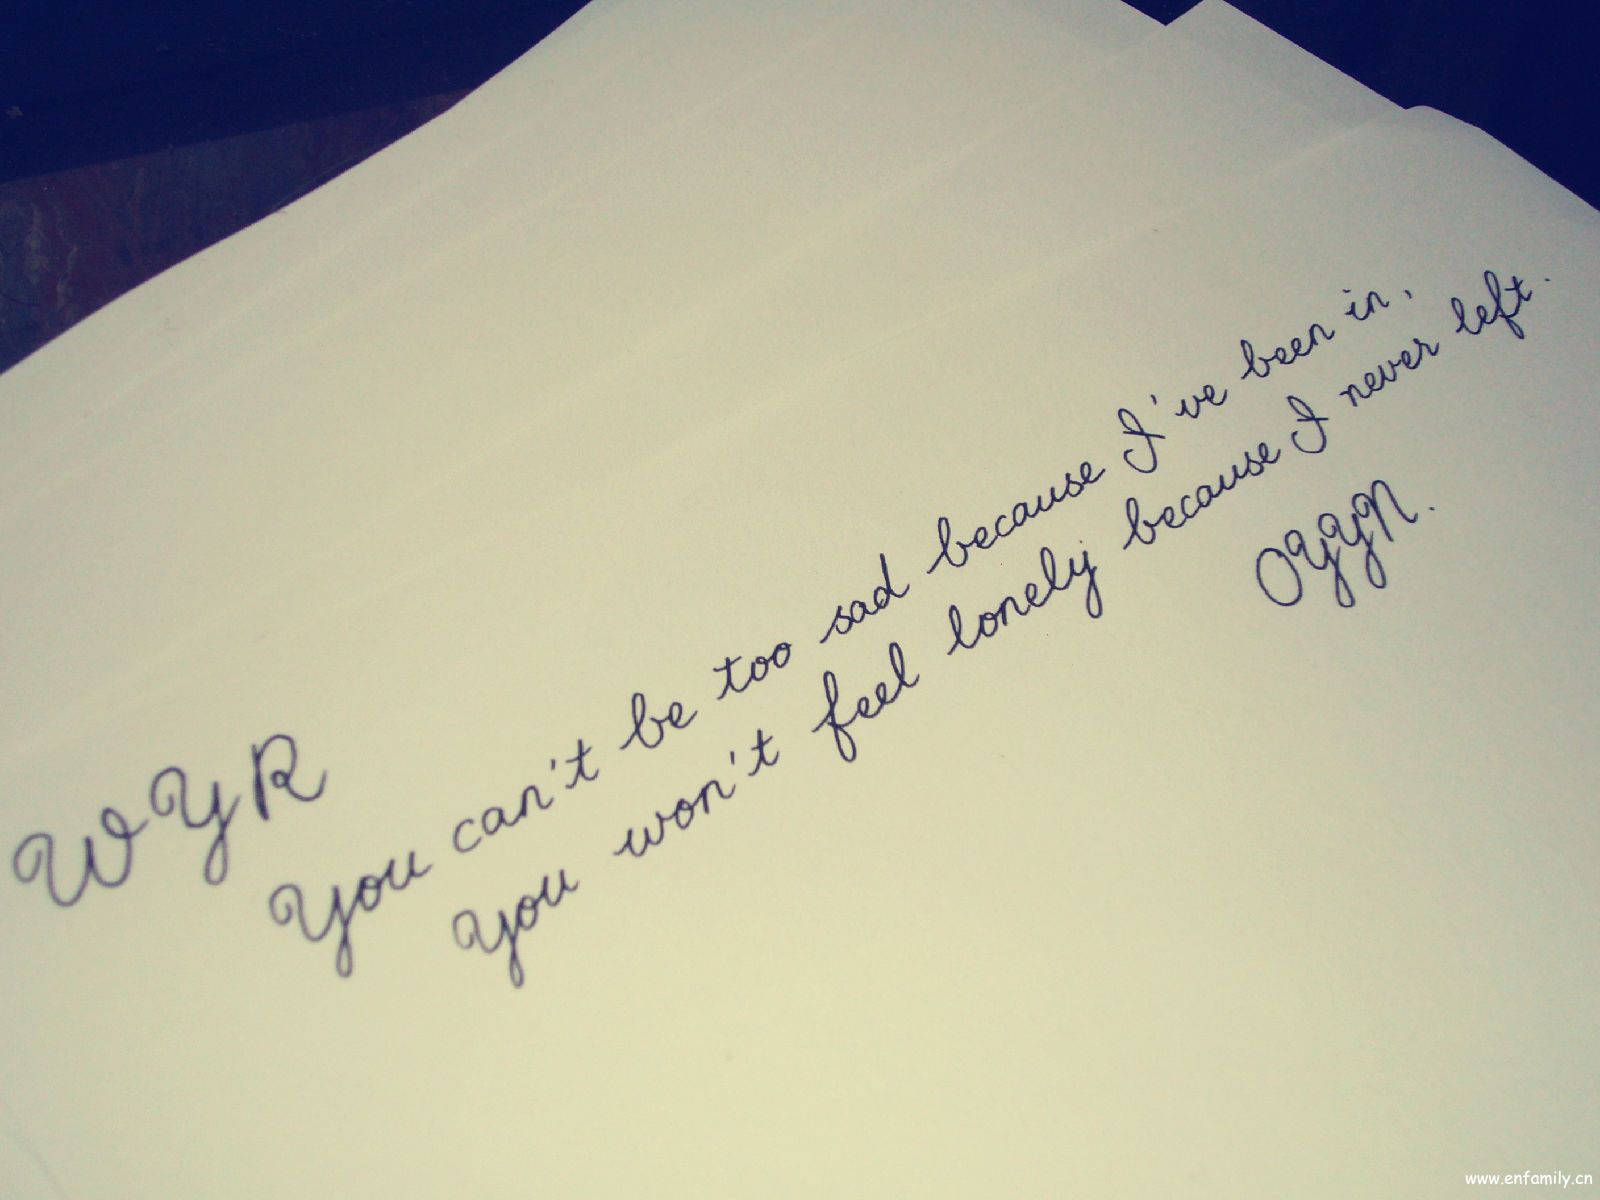 WYR
You can't be too sad because I've been in,
You won't feel lonely because I never left.
OYYN.
www.enfamily.cn